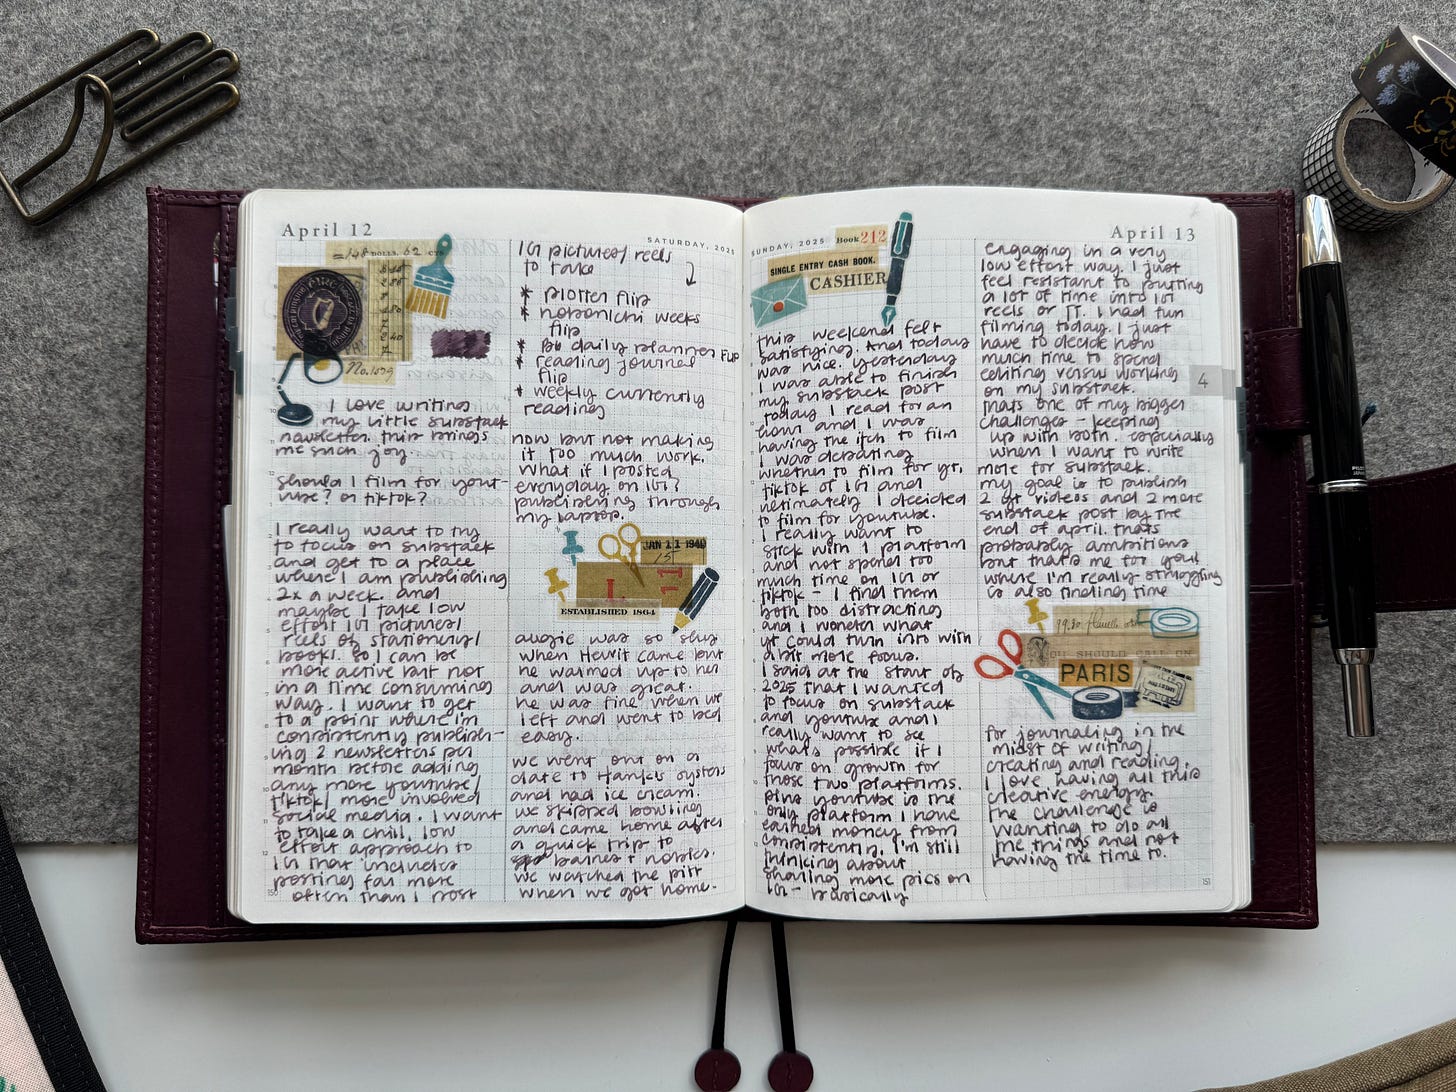 April 12
SATURDAY, 2025
No. 1879
I love writing
my little substack
newsletter. this brings
me such joy
should I film for yout-
ube? or tiktok?
I really want to try
to focus on substack
and get to a place
where I am publishing
2x a week. and
maybe I take low
effort IG pictures/
reels of stationery/
books. so I can be
more active but not
in a time consuming
way. I want to get
to a point where i'm
consistently publish-
ing 2 newsletters per
month before adding
any more youtube/
tiktok/ more involved
social media. I want
to take a chill, low
effort approach to
IG that includes
posting far more
often than I post
150
IG pictures/ reels
to take
* plotter flip
* hobonichi weeks
flip
* B6 daily planner FLIP
* reading journal
flip
* weekly currently
reading
now but not making
it too much work.
What if I posted
everyday on IG?
publishing through
my laptop.
JAN 11 1940
1st
L
11
ESTABLISHED 1864
augie was so shy
when Hewit came but
he warmed up to her
and was great.
he was fine when we
left and went to bed
easy.
we went out on a
date to Hanks oysters
and had ice cream.
we skipped bowling
and came home after
a quick trip to
barnes + nobles.
we watched the pitt
when we got home.
SUNDAY, 2025
Book 212
SINGLE ENTRY CASH BOOK.
CASHIER
this weekend felt
satisfying. And today
was nice. yesterday
I was able to finish
my substack post
today I read for an
hour and I was
having the itch to film
I was debating
whether to film for yt,
tiktok or IG and
ultimately I decided
to film for youtube.
I really want to
stick with 1 platform
and not spend too
much time on IG or
tiktok - I find them
both too distracting
and I wonder what
yt could turn into with
a bit more focus.
I said at the start of
2025 that I wanted
to focus on substack
and youtube and I
really want to see
what's possible if I
focus on growth for
those two platforms.
plus youtube is the
only platform I have
earned money from
consistently. I'm still
thinking about
sharing more pics on
IG - basically
April 13
engaging in a very
low effort way. I just
feel resistant to putting
a lot of time into IG
reels or TT. I had fun
filming today. I just
have to decide how
much time to spend
editing versus working
on my substack.
thats one of my bigger
challenges - keeping
up with both. especially
when I want to write
more for substack.
my goal is to publish
2 yt videos and 2 more
substack post by the
end of april. thats
probably ambitious
but that's me for you!
where I'm really struggling
is also finding time
YOU SHOULD CALL ON
PARIS
for journaling in the
midst of writing/
creating and reading.
I love having all this
creative energy.
the challenge is
wanting to do all
the things and not
having the time to.
4
151